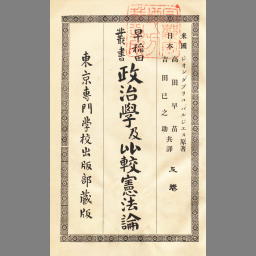 米國 ジオン、ダブリユ、バルジエス 原著
日本 高田早苗
吉田巳之助 共譯
上巻
早稲田叢書
政治學及比較憲法論
東京專門學校出版部藏版